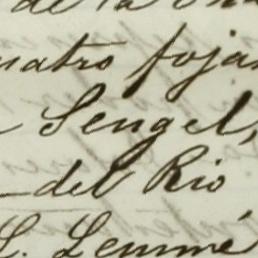 de la
uatro fojas
Sengel,
del Rio
L. Lemmé